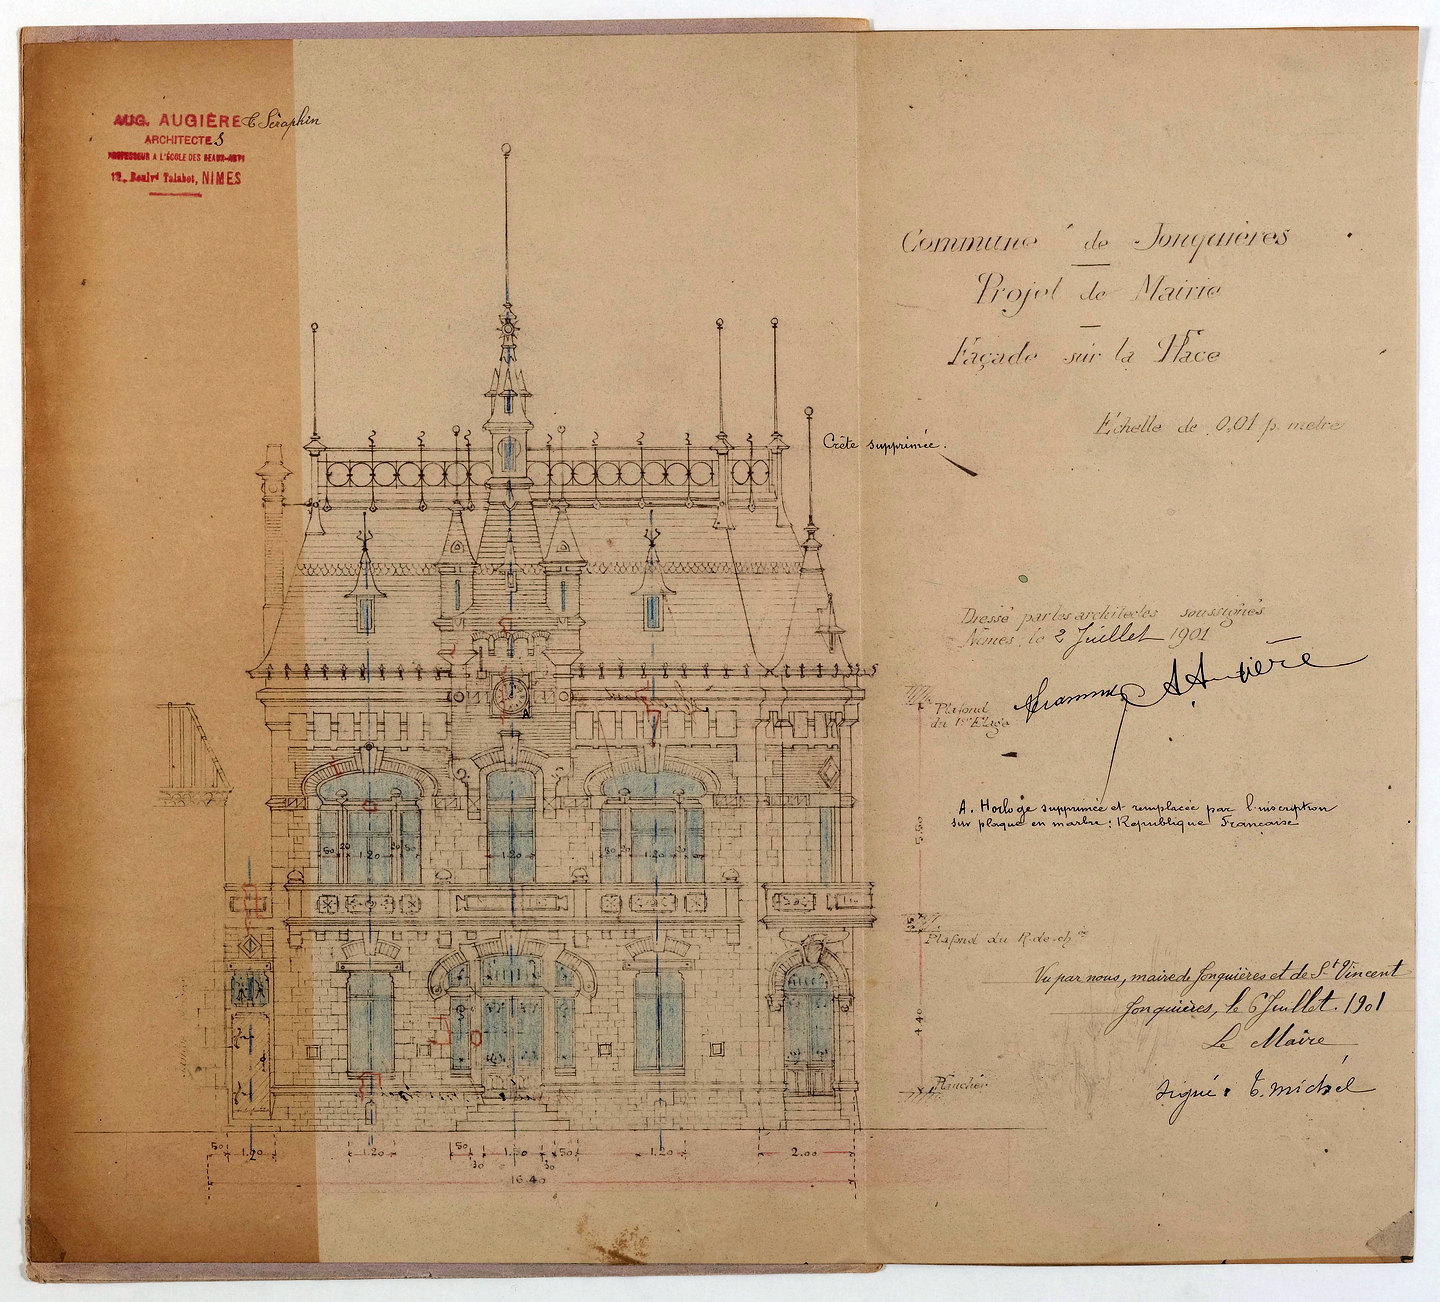 AUG. AUGIÈRE & Séraphin
ARCHITECTES
PROFESSEUR A L'ÉCOLE DES BEAUX-ARTS
12, Boulvd Talabot, NIMES
Commune de Jonquières
Projet de Mairie
Façade sur la Place
Échelle de 0,01 p. mètre
Crête supprimée.
Dressé par les architectes soussignés
Nîmes, le 2 Juillet 1901
A Augière
Plafond
du 1er Étage
A. Horloge supprimée et remplacée par l'inscription
sur plaque en marbre : République Française
5.50
A
50 20 1.20 20 50
1.20
50 20 1.20 20 50
Plafond du R.de.ch.
Vu par nous, maire de Jonquières et de St Vincent
Jonquières, le 6 Juillet 1901
Le Maire
signé : E. Michel
4.40
Plancher
50 1.20 1.20 50 30 1.50 30 50 1.20 2.00
16.40